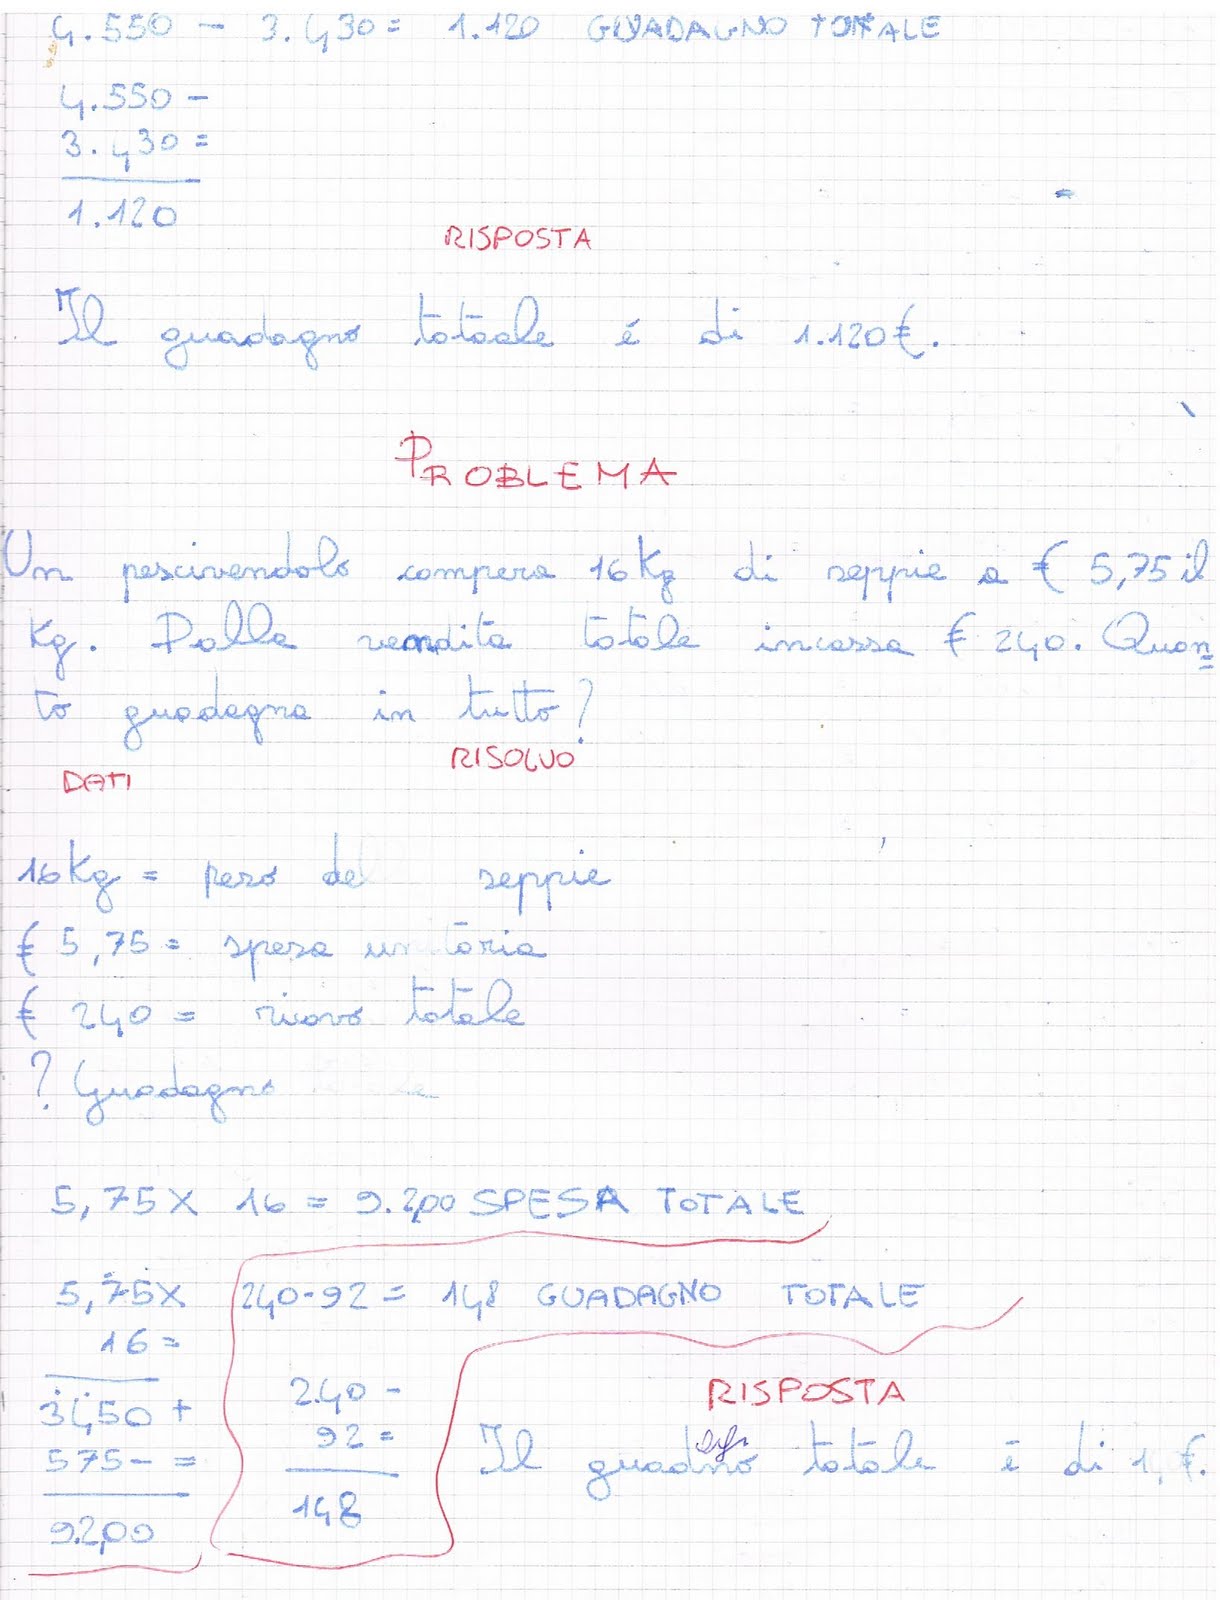 4.550 - 3.430 = 1.120 GUADAGNO TOTALE
4.550 -
3.430 =
1.120
RISPOSTA
Il guadagno totoale é di 1.120 €.
PROBLEMA
Un pescivendolo compera 16 Kg di seppie a € 5,75 il
Kg. Dalla vendita totale incassa € 240. Quan
to guadagna in tutto?
RISOLVO
DATI
16 Kg = peso del seppie
€ 5,75 = spesa unitaria
€ 240 = ricavo totale
? Guadagno
5,75 X 16 = 9.2,00 SPESA TOTALE
5,75 X 240-92 = 148 GUADAGNO TOTALE
16 =
3450 + 240 -
575- = 92 =
92,00 148
RISPOSTA
Il totale é di €.